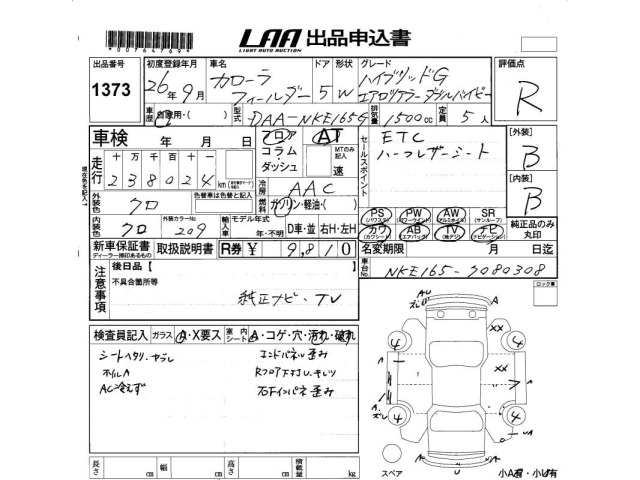 *0076476914*
LAA 出品申込書
LIGHT AUTO AUCTION
出品番号 初度登録年月 車名 ドア 形状 グレード 評価点
1373 26年 9月 カローラ フィールダー 5 W ハイブリッドG R
車歴 自家用・( ) 型式 DAA-NKE165G 排気量 1500cc 定員 5人
車検 年 月 日 フロア AT セールスポイント ETC 【外装】
コラム・ダッシュ MTのみ記入 速 ハーフレザーシート B
走行 十万千百十一
238024 km
冷房 AAC 【内装】
色替車は色替と記入 燃料 ガソリン・軽油・( ) B
外装色 クロ PS (パワステ) PW (パワーウインド) AW (アルミホイル) SR (サンルーフ)
内装色 クロ 外装カラーNo. 209 輸入車 モデル年式 年・不明 D車・並 右H・左H カワ (カワシート) AB (エアバッグ) TV (地デジ) ナビ (ナビゲーション) 純正品のみ丸印
新車保証書 取扱説明書 R券 ¥ 9,810 名変期限 月 日迄
ディーラー捺印あるもの
車台No. NKE165-7080308
注意事項 後日品【 】
不具合箇所等 純正ナビ・TV
ロック車
検査員記入 ガラス A・X要ス 室内シート A・コゲ・穴・汚れ・破れ
シートヘタリ・ヤブレ エンドパネル歪み
ホイルA
AC冷えず
長さ cm 幅 cm 高さ cm 積載量 kg
スペア 小A有・小U有
現在色を記入